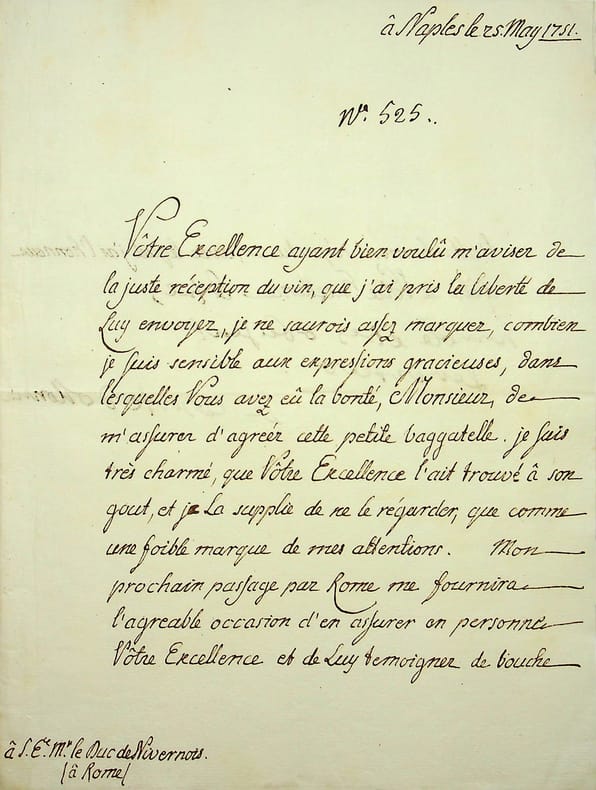 â Naples le 25. May 1751.
Nº. 525..
Vôtre Excellence ayant bien voulû m'aviser de
la juste réception du vin, que j'ai pris la liberté de
Luy envoyez, je ne saurois assez marquez, combien
je suis sensible aux expressions gracieuses, dans
lesquelles Vous avez eû la bonté, Monsieur, de
m'assurer d'agreér cette petite baggatelle. je suis
très charmé, que Vôtre Excellence l'ait trouvé â son
gout, et je La supplie de ne le régarder, que comme
une foible marque de mes attentions. Mon
prochain passage par Rome me fournira
l'agreable occasion d'en assurer en personne
Vôtre Excellence et de Luy temoignez de bouche
â S. E.ᶜ M.ʳ le Duc de Nivernois.
(â Rome)